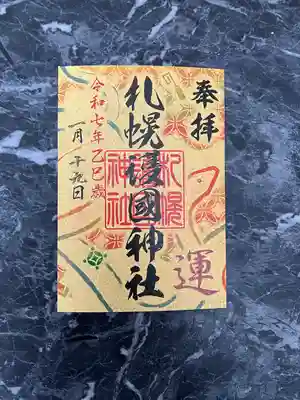 奉拝
運
札幌護國神社
札幌
神社
令和七年乙巳歳
一月